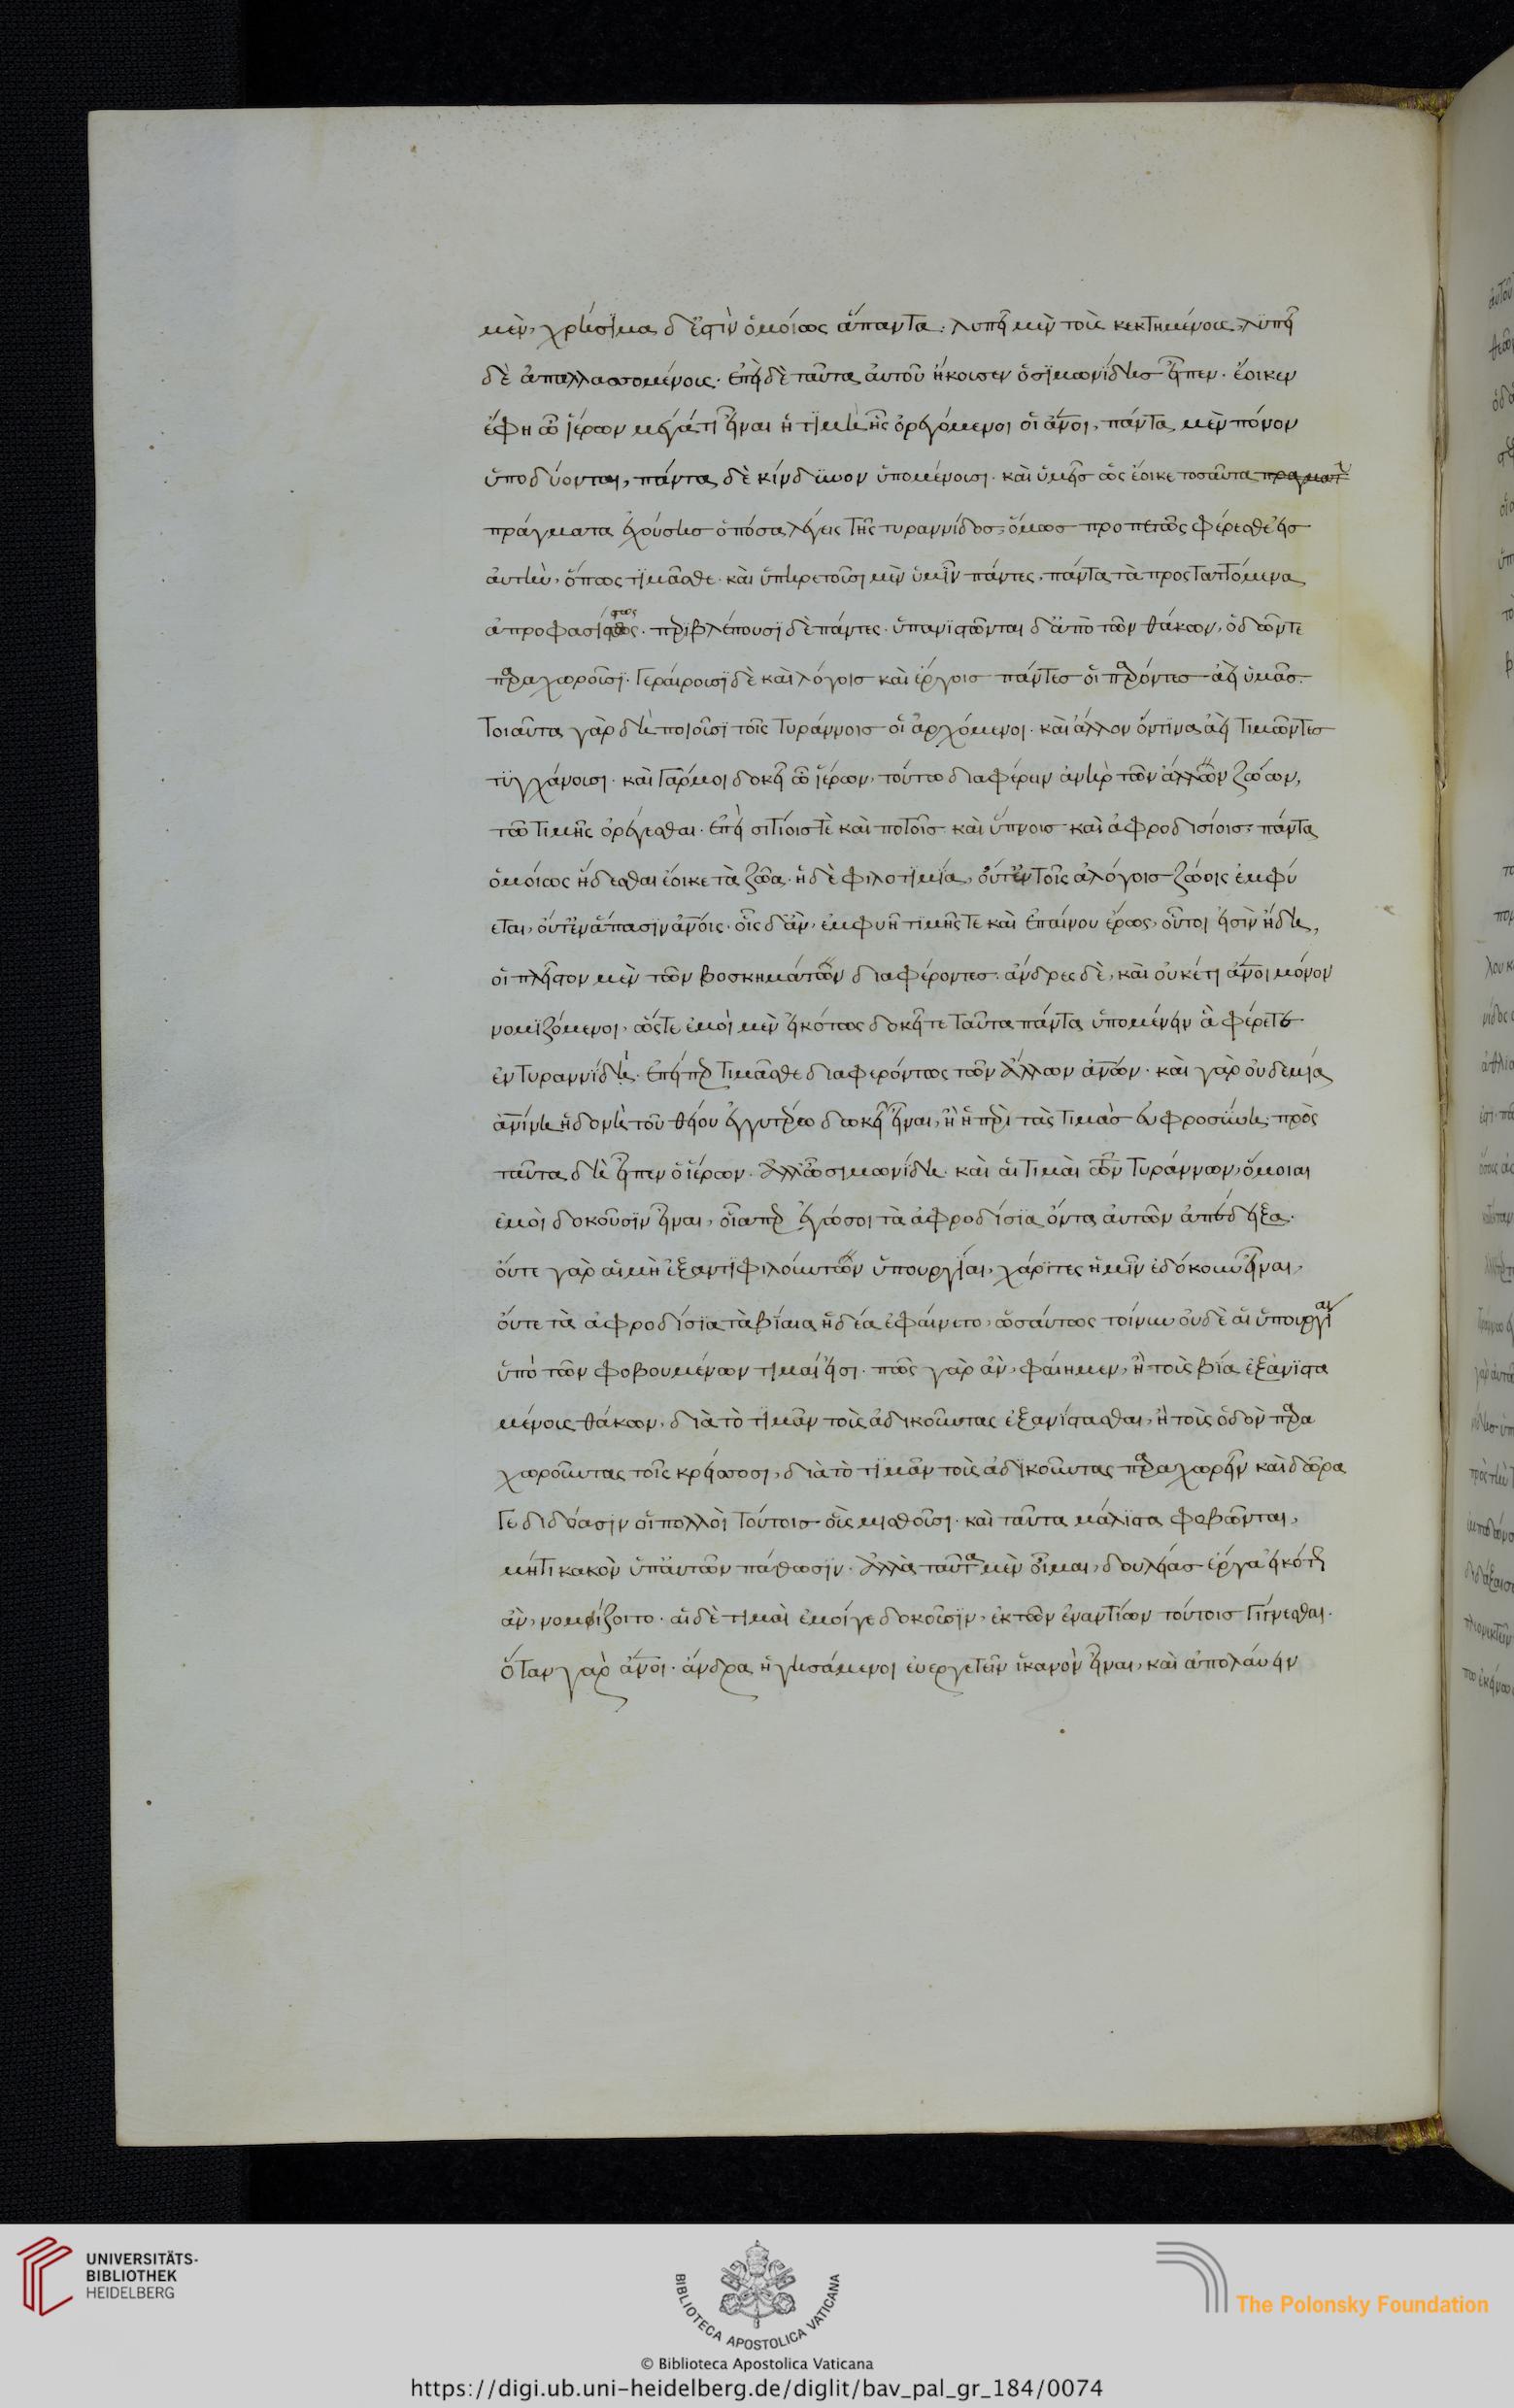 μὲν, χρήσιμα δ' ἐστὶν ὁμοίως ἅπαντα. λυπεῖ μὲν τοὺς κεκτημένους, λυπεῖ
δὲ ἀπαλλασσομένους. ἐπεὶ δὲ ταῦτα αὐτοῦ ἤκουσεν ὁ σιμωνίδης εἶπεν. ἔοικεν
ἔφη ὦ ἱέρων μέγά τι εἶναι ἡ τιμὴ ἧς ὀρεγόμενοι οἱ ἄνοι, πάντα μὲν πόνον
ὑποδύονται, πάντα δὲ κίνδυνον ὑπομένουσι. καὶ ὑμεῖς ὡς ἔοικε τοσαῦτα πραγματ
πράγματα ἐχούσης ὁπόσα λέγεις τῆς τυραννίδος, ὅμως προπετῶς φέρεσθε εἰς
αὐτὴν, ὅπως τιμᾶσθε. καὶ ὑπηρετοῦσι μὲν ὑμῖν πάντες, πάντα τὰ προσταττόμενα
ἀπροφασίστως. περιβλέπουσι δὲ πάντες. ὑπανιστῶνται δ' ἀπὸ τῶν θάκων, ὁδῶν τε
παραχωροῦσι. γεραίρουσι δὲ καὶ λόγοις καὶ ἔργοις πάντες οἱ παρόντες ἀεὶ ὑμᾶς.
τοιαῦτα γὰρ δὴ ποιοῦσι τοῖς τυράννοις οἱ ἀρχόμενοι. καὶ ἄλλον ὅντινα ἀεὶ τιμῶντες
τυγχάνουσι. καὶ γάρ μοι δοκεῖ ὦ ἱέρων, τούτω διαφέρειν ἀνὴρ τῶν ἄλλων ζώων,
τῶ τιμῆς ὀρέγεσθαι. ἐπεὶ σιτίοις τὲ καὶ ποτοῖς καὶ ὕπνοις καὶ ἀφροδισίοις, πάντα
ὁμοίως ἥδεσθαι ἔοικε τὰ ζῶα. ἡ δὲ φιλοτιμία, οὔτ' ἐν τοῖς ἀλόγοις ζώοις ἐμφύ
εται, οὔτ' ἐν ἅπασιν ἀνοις. οἷς δ' ἂν, ἐμφυῆ τιμῆς τε καὶ ἐπαίνου ἔρως, οὗτοι εἰσὶν ἤδη,
οἱ πλεῖστον μὲν τῶν βοσκημάτων διαφέροντες. ἄνδρες δὲ, καὶ οὐκέτι ἄνοι μόνον
νομιζόμενοι, ὥστε ἐμοὶ μὲν εἰκότως δοκεῖτε ταῦτα πάντα ὑπομένειν ἃ φέρετε
ἐν τυραννίδη. ἐπείπερ τιμᾶσθε διαφερόντως τῶν ἄλλων ἀνων. καὶ γὰρ οὐδεμία
ἀνίνη ἡδονὴ τοῦ θείου ἐγγυτέρω δωκεῖ εἶναι, ἢ ἡ περὶ τὰς τιμὰς εὐφροσύνη. πρὸς
ταῦτα δὴ εἶπεν ὁ ἱέρων. ἀλλ' ὦ σιμωνίδη. καὶ αἱ τιμαὶ τῶν τυράννων, ὅμοιαι
ἐμοὶ δοκοῦσιν εἶναι, οἷαπερ ἐγώ σοι τὰ ἀφροδίσια ὄντα αὐτῶν ἀπέδειξα.
οὔτε γὰρ αἱ μὴ ἐξ αντιφιλούντων ὑπουργίαι, χάριτες ἡμῖν ἐδόκουν εἶναι,
οὔτε τὰ ἀφροδίσια τὰ βίαια ἡδέα ἐφαίνετο, ὡσάυτως τοίνυν οὐδὲ αἱ ὑπουργίαι
ὑπὸ τῶν φοβουμένων τιμαί εἰσι. πῶς γὰρ ἂν, φαίημεν, ἢ τοὺς βία ἐξανιστα
μένους θάκων, διὰ τὸ τιμᾶν τοὺς ἀδικοῦντας ἐξανίστασθαι, ἢ τοὺς ὁδὸν παρα
χωροῦντας τοῖς κρείσσοσι, διὰ τὸ τιμᾶν τοὺς ἀδικοῦντας παραχωρεῖν καὶ δῶρα
γε διδόασιν οἱ πολλοὶ τούτοις οὓς μισθοῦσι. καὶ ταῦτα μάλιστα φοβῶνται,
μήτι κακὸν ὑπ' αὐτῶν πάθωσιν. ἀλλὰ ταῦτα μὲν οἶμαι, δουλείας ἔργα εἰκότως
ἂν, νομίζοιτο. αἱ δὲ τιμαὶ ἐμοίγε δοκοῦσιν, ἐκ τῶν ἐναντίων τούτοις γίγνεσθαι.
ὅταν γὰρ ἄνοι. ἄνδρα ἡγησάμενοι ἐυεργετεῖν ἱκανὸν εἶναι, καὶ ἀπολάυειν
UNIVERSITÄTS-
BIBLIOTHEK
HEIDELBERG
BIBLIOTECA APOSTOLICA VATICANA
The Polonsky Foundation
© Biblioteca Apostolica Vaticana
https://digi.ub.uni-heidelberg.de/diglit/bav_pal_gr_184/0074